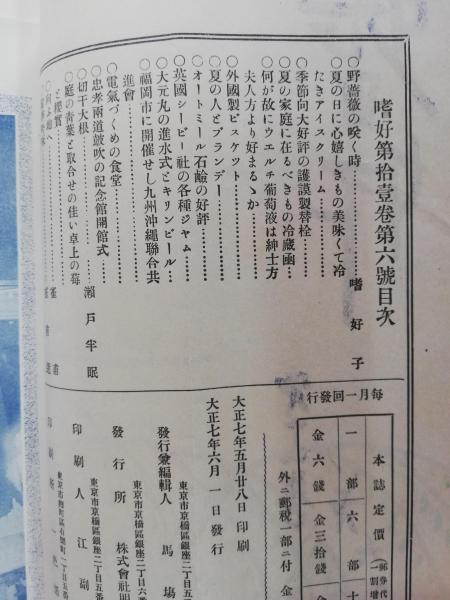 嗜好第拾壹卷第六號目次
○野薔薇の咲く時……………嗜好子
○夏の日に心嬉しきもの美味くて冷
たきアイスクリーム……………
○季節向大好評の護謨製替栓……
○夏の家庭に在るべきもの冷藏凾…
○何が故にウエルチ葡萄液は紳士方
夫人方より好まるゝか……………
○外國製ビスケツト……………
○夏の人とブランデー……………
○オートミール石鹼の好評………
○英國シーピー社の各種ジヤム……
○大元丸の進水式とキリンビール…
○福岡市に開催せし九州沖繩聯合共
進會……………
○電氣づくめの食堂……………
○忠孝兩道鼓吹の記念館開館式…
○切干大根……………瀨戸半眠
○庭の靑葉と取合せの佳い卓上の莓
と櫻實
每月一回發行
本誌定價
一部
六部
金六錢
金三拾錢
外ニ郵稅一部ニ付金
大正七年五月廿八日印刷
大正七年六月一日發行
東京市京橋區銀座二丁目五
發行兼編輯人 馬場
東京市京橋區銀座二丁目六番
發行所 株式會社明
東京市京橋區銀座二丁目五番
印刷人 江副
印刷所